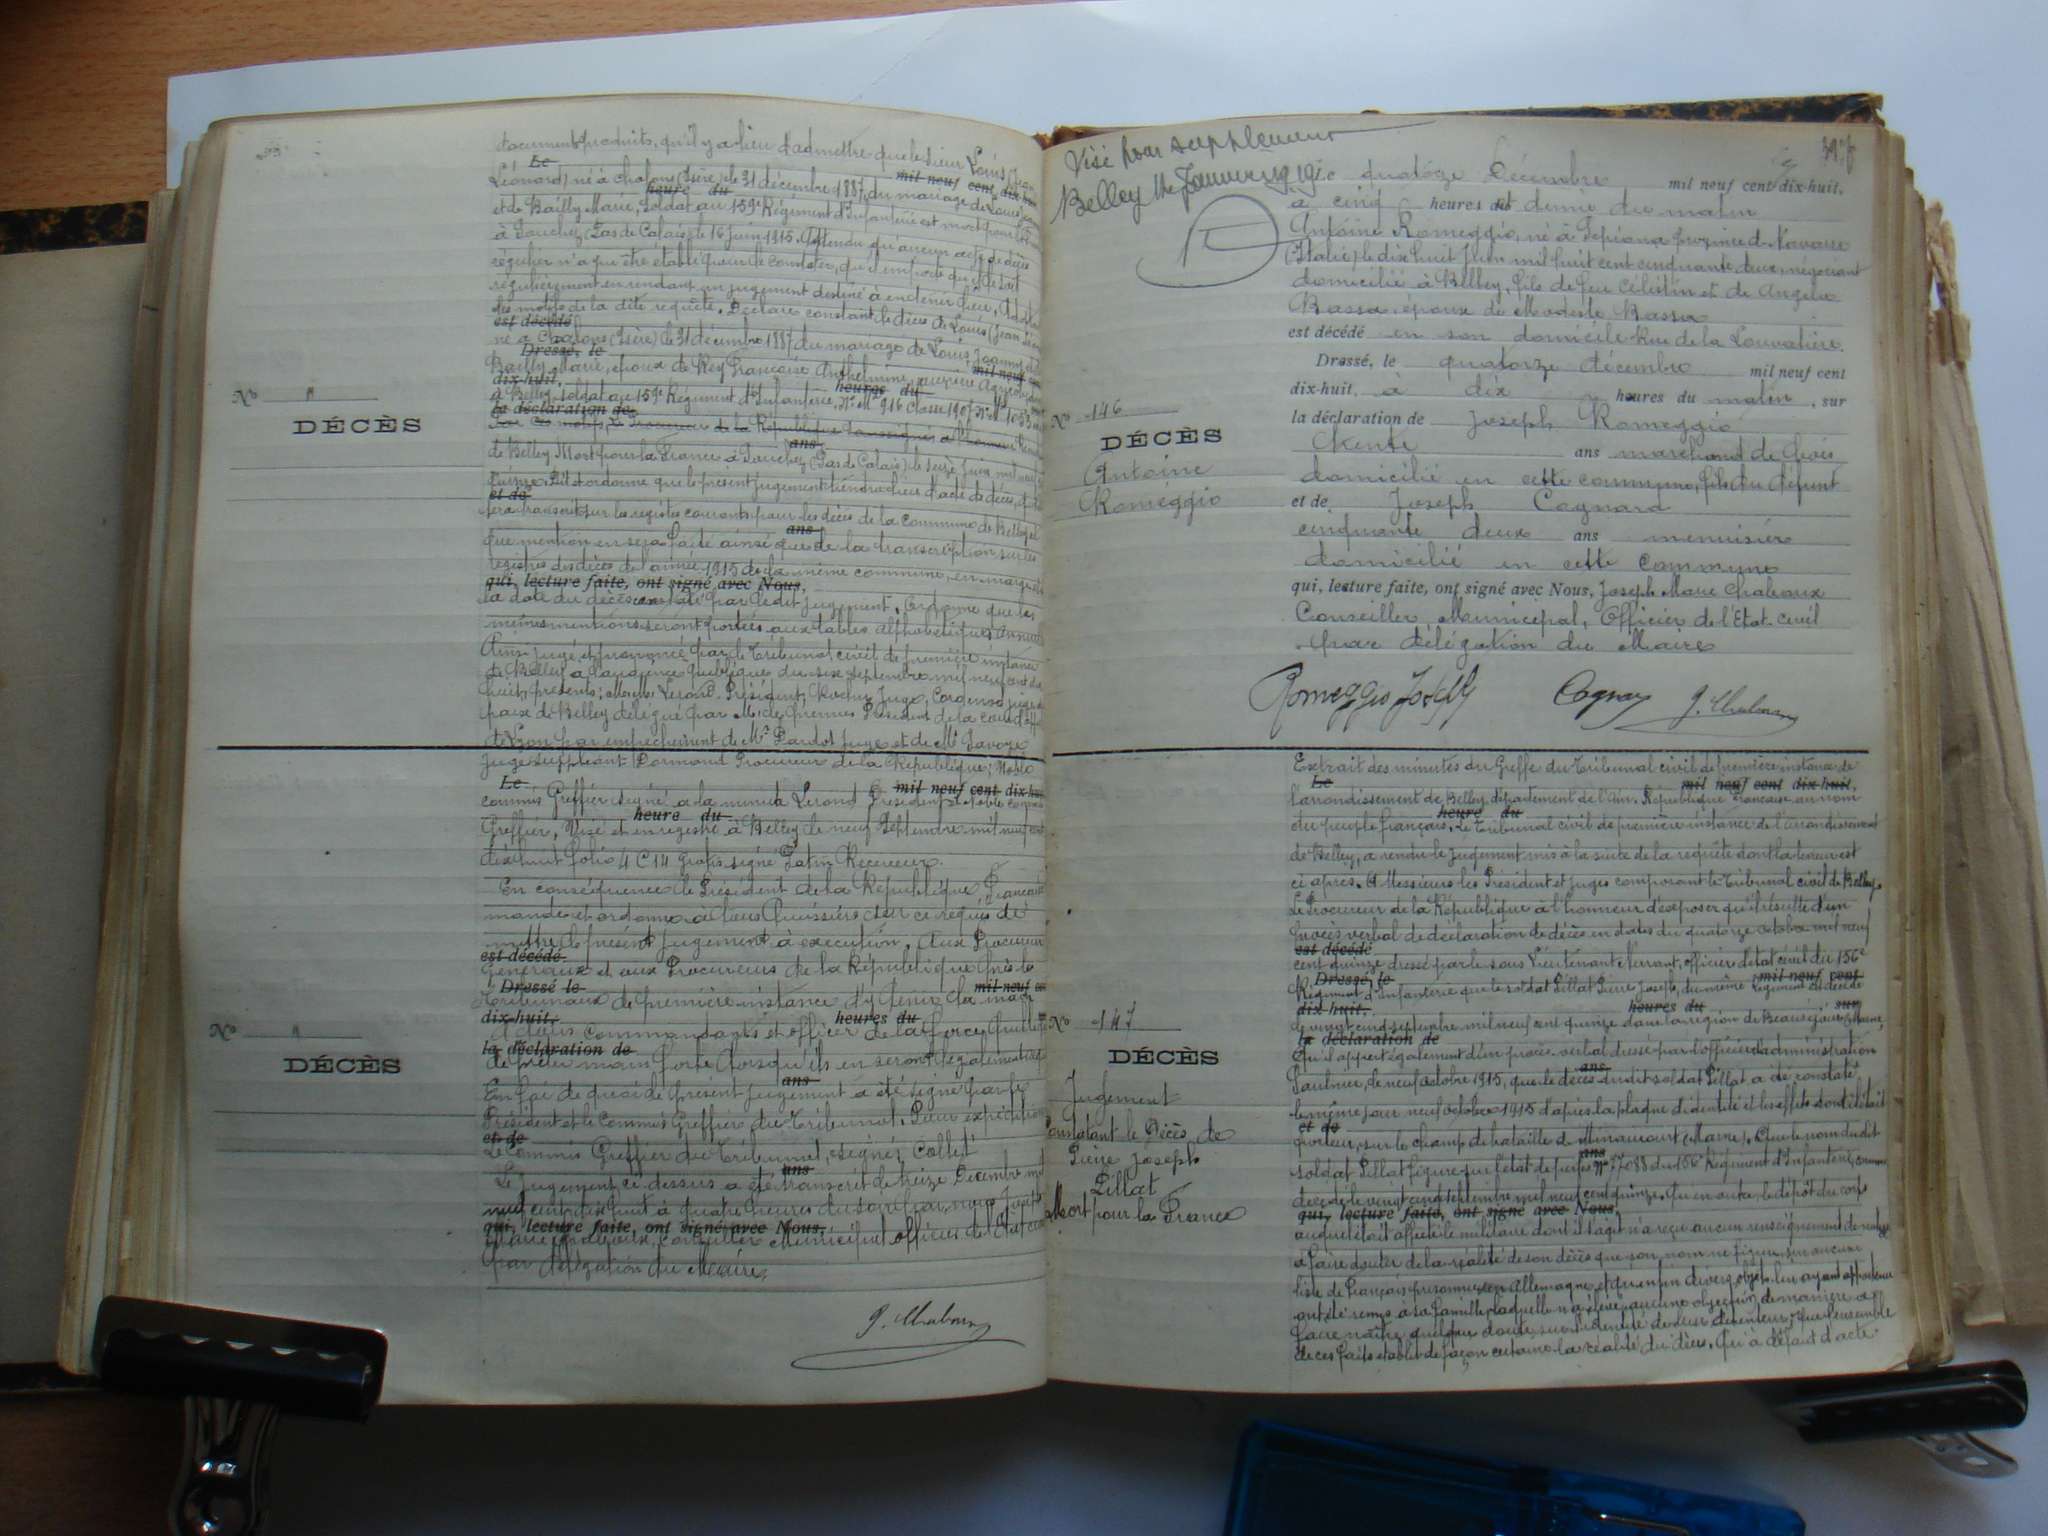 documents produits, qu'il y a lieu d'admettre que le sieur Louis (Jean
Le mil neuf cent dix-huit
Léonard) né à Chalons (Isère) le 31 décembre 1887, du mariage de Louis
heure du
et de Bailly Marie, soldat au 159e Régiment d'Infanterie est mort pour la
à Souchez (Pas de Calais) le 16 juin 1915. Attendu qu'aucun acte de décès
régulier n'a pu être établi pour le constater, qu'il importe qu'il le soit
régulièrement en rendant un jugement destiné à en tenir lieu,
les motifs de la dite requête. Déclare constant le décès de Louis (Jean
est décédé
né à Chalons (Isère) le 31 décembre 1887 du mariage de Louis
Dressé, le mil neuf cent
Bailly Marie, époux de Rey Françoise Anthelmine,
dix-huit, heures du
à Belley, soldat au 159e Régiment d'Infanterie,
la déclaration de
ans
de Belley Mort pour la France à Souchez (Pas de Calais) le seize juin mil neuf
quinze. Dit et ordonne que le présent jugement tiendra lieu d'acte de décès,
et de
sera transcrit sur les registres courants pour les décès de la commune de Belley et
ans
que mention en sera faite ainsi que de la transcription sur les
registres des décès de l'année 1915 de la même commune, en marge
qui, lecture faite, ont signé avec Nous,
la date du décès par le dit jugement. Ordonne que les
mêmes mentions seront portées aux tables alphabétiques
Ainsi jugé et prononcé par le Tribunal civil de première instance
de Belley à l'audience publique du six septembre mil neuf cent dix
huit, présents; Lerond Président, Juge,
paix de Belley délégué par Mr le Premier Président de la cour d'appel
de Lyon par empêchement de Mr Pardot juge et de Mr Savoye
juge suppléant. Dormand Procureur de la République; Noble
Le mil neuf cent dix-huit
commis Greffier signé à la minute Lerond Président Noble commis
heure du
Greffier, Visé et enregistré à Belley le neuf Septembre mil neuf cent
dix huit folio 4 C 14 gratis signé Patin Receveur.
En conséquence le Président de la République Française
mande et ordonne à tous Huissiers sur ce requis de
mettre le présent jugement à exécution, Aux Procureurs
est décédé
Généraux et aux Procureurs de la République près les
Dressé le mil neuf cent
Tribunaux de première instance d'y tenir la main
dix-huit, heures du
A tous commandants et officiers de la force publique
la déclaration de
de prêter main forte lorsqu'ils en seront légalement requis
ans
En foi de quoi le présent jugement a été signé par le
Président et le Commis Greffier du Tribunal. Pour expédition
et de
Le Commis Greffier du Tribunal, signé, Collet
ans
Le jugement ci dessus a été transcrit le treize Décembre mil
neuf cent dix huit à quatre heures du soir par nous Joseph
qui, lecture faite, ont signé avec Nous,
Marie Chaboux, conseiller Municipal officier de l'Etat civil
par délégation du Maire.
No "
DÉCÈS
No "
DÉCÈS
Visé pour supplément
Belley
Le quatorze Décembre mil neuf cent dix-huit,
à cinq heures et demie du matin
Antoine Romeggio, né à Pepiona province de Navarre
(Italie) le dix huit Juin mil huit cent cinquante deux, négociant
domicilié à Belley, fils de feu Célestin et de Angela
Bassa, époux de Modeste Bassa
est décédé en son domicile Rue de la Louvatière.
Dressé, le quatorze décembre mil neuf cent
dix-huit, à dix heures du matin, sur
la déclaration de Joseph Romeggio
trente ans marchand de bois
domicilié en cette commune, fils du défunt
et de Joseph Cognard
cinquante deux ans menuisier
domicilié en cette commune
qui, lecture faite, ont signé avec Nous, Joseph Marie Chaboux
Conseiller Municipal, Officier de l'Etat-civil
par délégation du Maire
No 146
DÉCÈS
Antoine
Romeggio
Romeggio Joseph
Extrait des minutes du Greffe du Tribunal civil de première instance de
Le mil neuf cent dix-huit,
l'arrondissement de Belley, département de l'Ain. République Française au nom
heure du
du peuple français, Le Tribunal civil de première instance de l'arrondissement
de Belley, a rendu le jugement mis à la suite de la requête dont la teneur est
ci après. A Messieurs les Président et juges composant le Tribunal civil de Belley.
Le Procureur de la République a l'honneur d'exposer qu'il résulte d'un
procès verbal de déclaration de décès en date du quatorze octobre mil neuf
est décédé
cent quinze dressé par le sous Lieutenant Marrant, officier d'état civil du 156e
Dressé, le mil neuf cent
Régiment d'Infanterie que le soldat Pillat Pierre Joseph, du même régiment est décédé
dix-huit, heures du sur
le vingt cinq septembre mil neuf cent quinze dans la région de Beauséjour (Marne)
la déclaration de
Qu'il appert également d'un procès-verbal dressé par l'officier d'administration
ans
Saulnier, le neuf octobre 1915, que le décès dudit soldat Pillat a été constaté
le même jour neuf octobre 1915 d'après la plaque d'identité et les effets dont il était
et de
porteur, sur le champ de bataille de Minaucourt (Marne). Que le nom du dit
ans
soldat Pillat figure sur l'état de pertes No 77088 du 156e Régiment d'Infanterie, comme
décédé le vingt cinq septembre mil neuf cent quinze. Qu'en outre le dépôt du corps
qui, lecture faite, ont signé avec Nous,
auquel était affecté le militaire dont il s'agit n'a reçu aucun renseignement de nature
à faire douter de la réalité de son décès que son nom ne figure sur aucune
liste de Français prisonniers en Allemagne, et qu'enfin divers objets lui ayant appartenu
ont été remis à sa famille, laquelle n'a élevé aucune objection de manière à
faire naître quelque doute sur l'identité de leur détenteur, Que l'ensemble
de ces faits établit de façon certaine la réalité du décès. Qu'à défaut d'acte
No 147
DÉCÈS
Jugement
constatant le Décès de
Pierre Joseph
Pillat
Mort pour la France